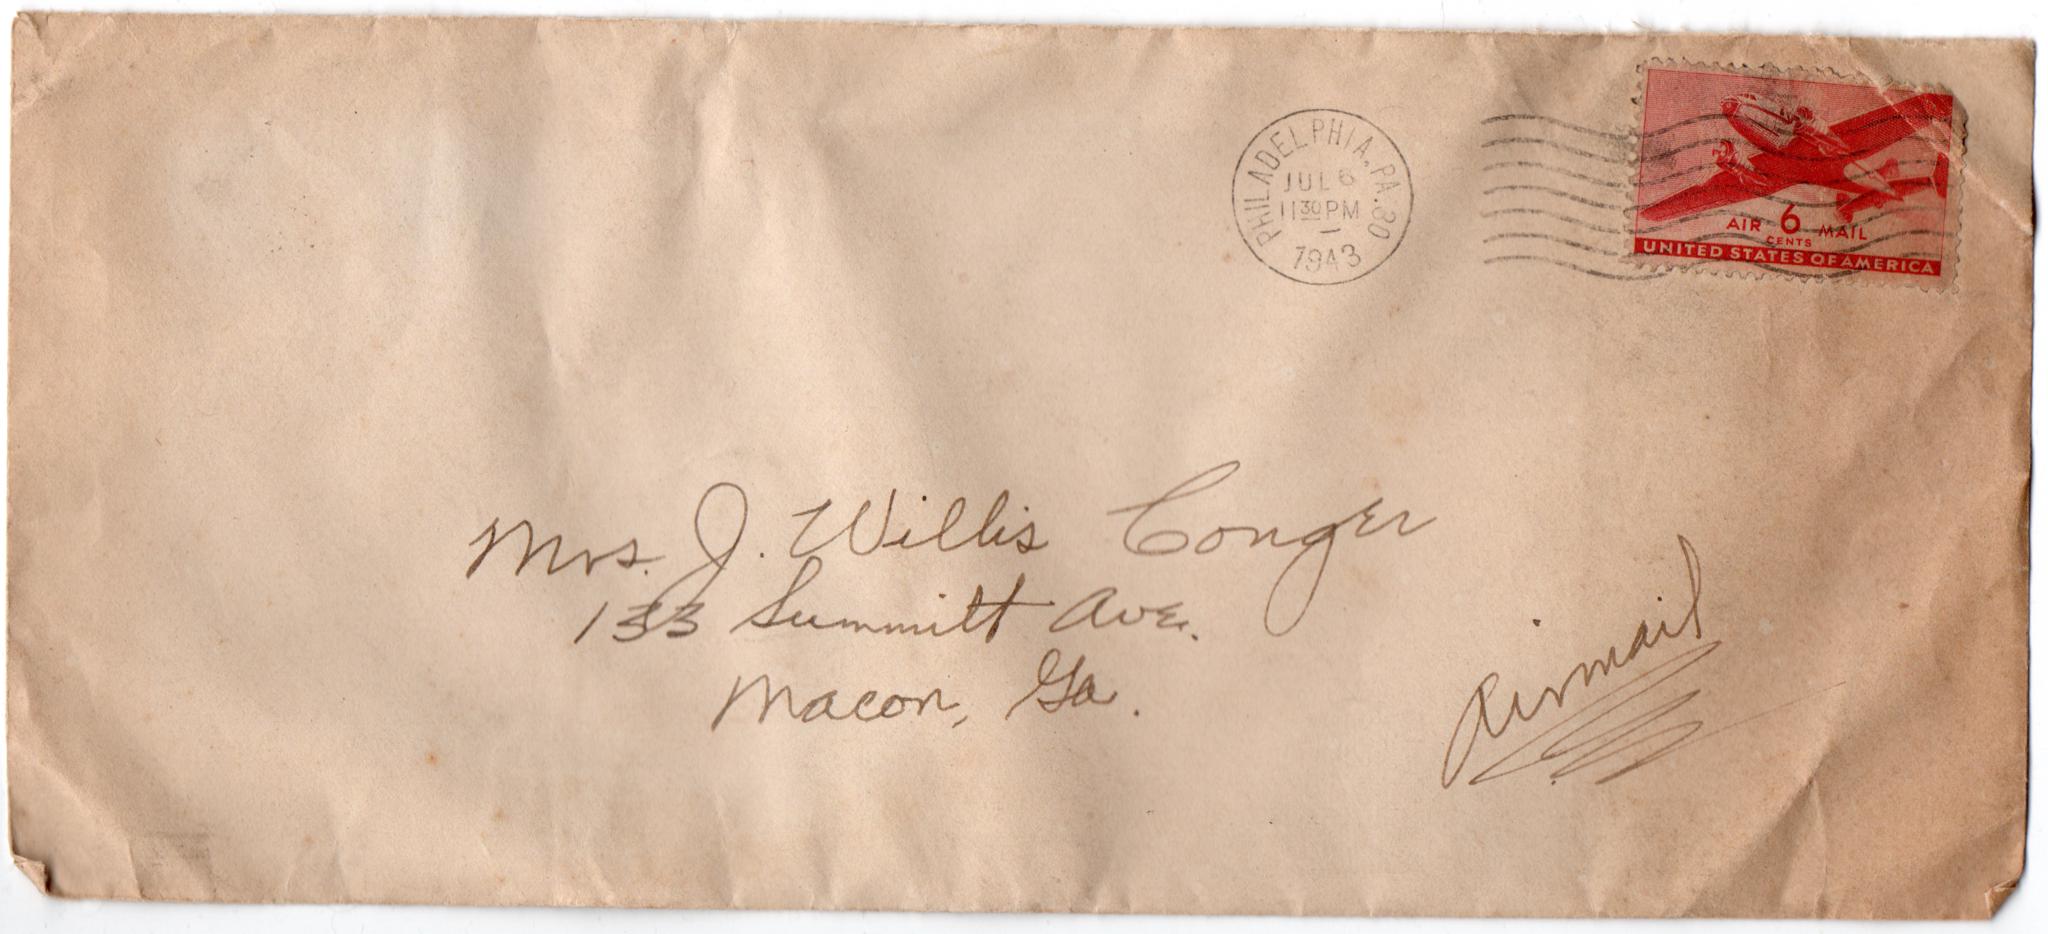 PHILADELPHIA, PA. 30
JUL 6
11 30 PM
1943
AIR 6 MAIL
CENTS
UNITED STATES OF AMERICA
Mrs. J. Willis Conger
133 Summitt Ave.
Macon, Ga.
Airmail